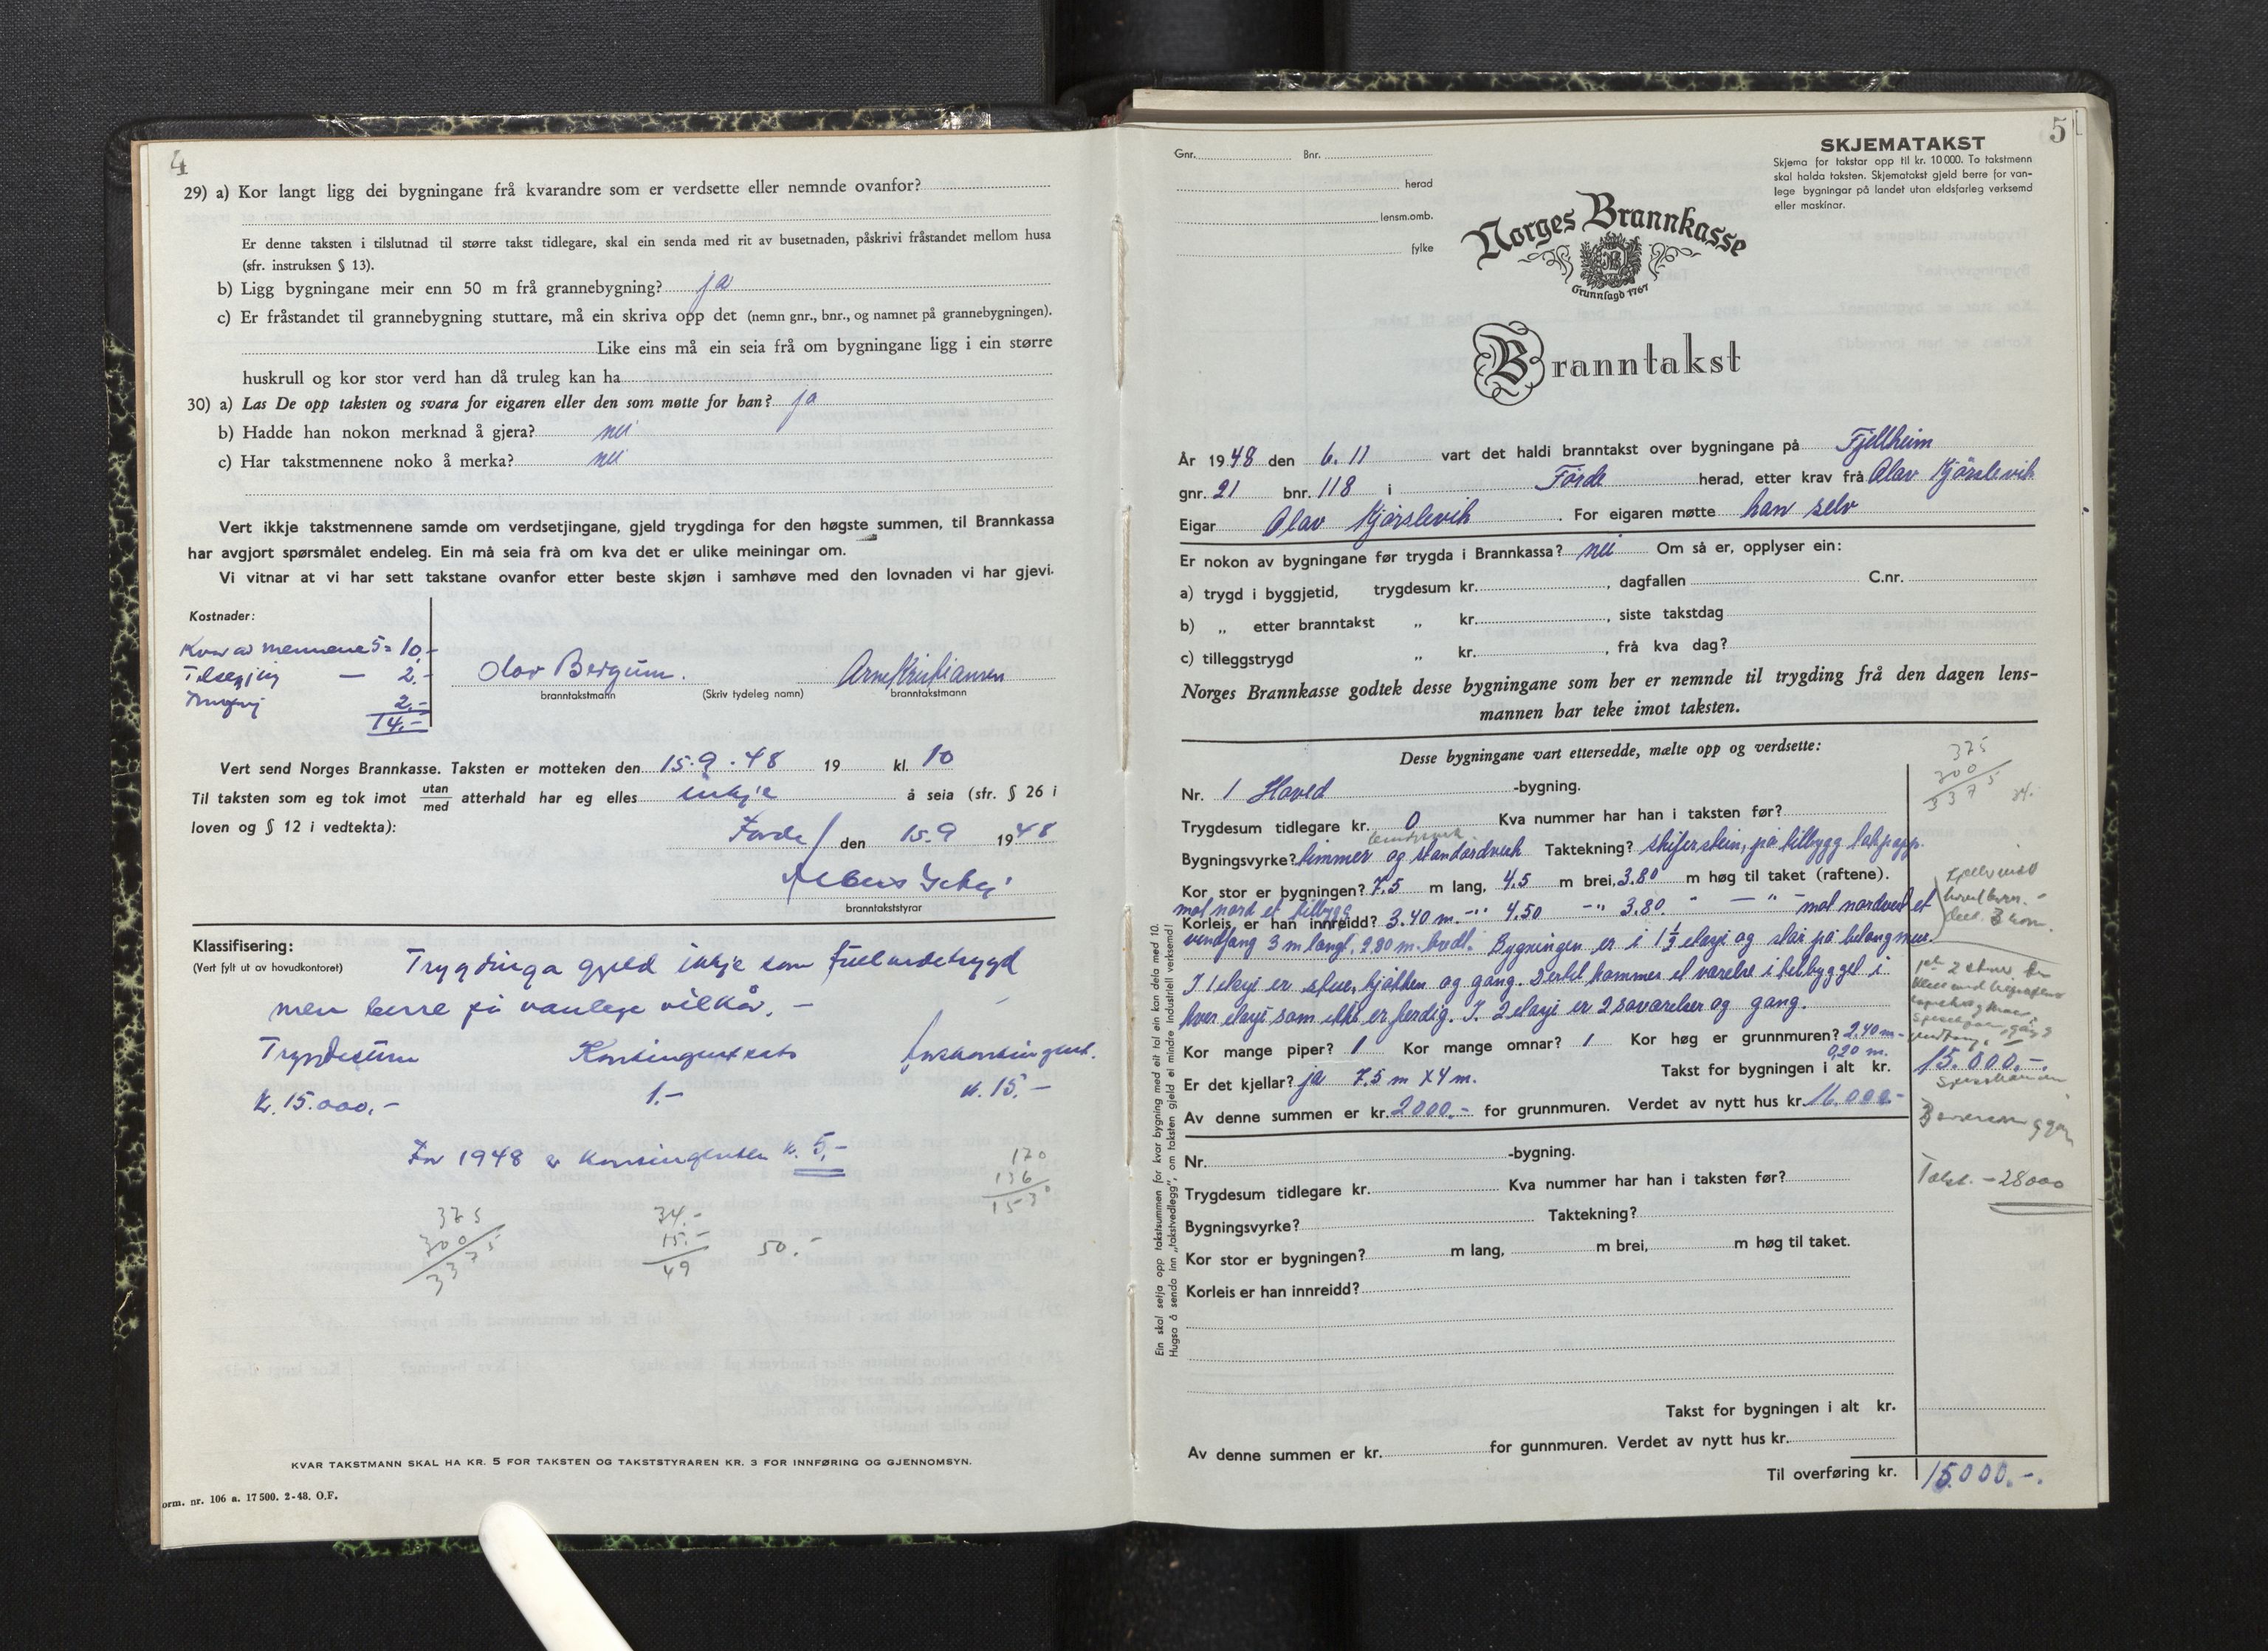 4
29) a) Kor langt ligg dei bygningane frå kvarandre som er verdsette eller nemnde ovanfor?
Er denne taksten i tilslutnad til større takst tidlegare, skal ein senda med rit av busetnaden, påskrivi fråstandet mellom husa
(sfr. instruksen § 13).
b) Ligg bygningane meir enn 50 m frå grannebygning? ja
c) Er fråstandet til grannebygning stuttare, må ein skriva opp det (nemn gnr., bnr., og namnet på grannebygningen).
Like eins må ein seia frå om bygningane ligg i ein større
huskrull og kor stor verd han då truleg kan ha
30) a) Las De opp taksten og svara for eigaren eller den som møtte for han? ja
b) Hadde han nokon merknad å gjera? nei
c) Har takstmennene noko å merka? nei
Vert ikkje takstmennene samde om verdsetjingane, gjeld trygdinga for den høgste summen, til Brannkassa
har avgjort spørsmålet endeleg. Ein må seia frå om kva det er ulike meiningar om.
Vi vitnar at vi har sett takstane ovanfor etter beste skjøn i samhøve med den lovnaden vi har gjevi.
Kostnader:
Kvar av mennene 5 = 10,-
2,-
2,-
14,-
Olav Bergum. Arne Kristiansen
branntakstmann (Skriv tydeleg namn) branntakstmann
Vert send Norges Brannkasse. Taksten er motteken den 15.9.48 19 kl. 10
Til taksten som eg tok imot utan/med atterhald har eg elles inkje å seia (sfr. § 26 i
loven og § 12 i vedtekta):
Førde / den 15.9 1948
branntakststyrar
Klassifisering:
(Vert fylt ut av hovudkontoret)
Trygdinga gjeld ikkje som fullverdetrygd
men berre på vanlege vilkår. -
Trygdesum Kontingentsats Årskontingent.
kr. 15.000,- 1.- kr. 15,-
For 1948 er kontingenten kr. 5,-
170
136
1530
375
300
3375
34.-
15.-
49
50.-
KVAR TAKSTMANN SKAL HA KR. 5 FOR TAKSTEN OG TAKSTSTYRAREN KR. 3 FOR INNFØRING OG GJENNOMSYN.
orm. nr. 106 a. 17 500. 2-48. O.F.
5
Gnr. Bnr.
herad
lensm.omb.
fylke
SKJEMATAKST
Skjema for takstar opp til kr. 10 000. To takstmenn
skal halda taksten. Skjematakst gjeld berre for van-
lege bygningar på landet utan eldsfarleg verksemd
eller maskinar.
Norges Brannkasse
Grunnlagd 1767
Branntakst
År 1948 den 6.11 vart det haldi branntakst over bygningane på Fjellheim
gnr. 21 bnr. 118 i Førde herad, etter krav frå Olav Kjørslevik
Eigar Olav Kjørslevik. For eigaren møtte han selv
Er nokon av bygningane før trygda i Brannkassa? nei Om så er, opplyser ein:
a) trygd i byggjetid, trygdesum kr. , dagfallen C.nr.
b) „ etter branntakst „ kr. , siste takstdag
c) tilleggstrygd „ kr. , frå kva dag?
Norges Brannkasse godtek desse bygningane som her er nemnde til trygding frå den dagen lens-
mannen har teke imot taksten.
Desse bygningane vart ettersedde, mælte opp og verdsette:
375
300
3375
Nr. 1 Hoved -bygning.
Trygdesum tidlegare kr. 0 Kva nummer har han i taksten før?
Bygningsvyrke? timmer og standardverk Taktekning? skiferstein, på tilbygg takpapp.
Kor stor er bygningen? 7.5 m lang, 4.5 m brei, 3.80 m høg til taket (raftene).
mot nord et tilbygg
Korleis er han innreidd? 3.40 m. -"- 4.50 -"- 3.80. " -" mot nordvest et
vindfang 3 m langt, 2.80 m. bredt. Bygningen er i 1 1/2 etasje og står på betongmur.
I 1 etasje er stue, kjøkken og gang. Dertil kommer et værelse i tilbygget i
hver etasje som ikke er ferdig. I 2 etasje er 2 soværelser og gang.
Kor mange piper? 1 Kor mange omnar? 1 Kor høg er grunnmuren? 2.40 m -
0,20 m.
Er det kjellar? ja 7.5 m x 4 m. Takst for bygningen i alt kr. 15.000.-.
Av denne summen er kr. 2000.- for grunnmuren. Verdet av nytt hus kr. 16.000.-
Takst. - 28000
Nr. -bygning.
Trygdesum tidlegare kr. Kva nummer har han i taksten før?
Bygningsvyrke? Taktekning?
Kor stor er bygningen? m lang, m brei, m høg til taket.
Korleis er han innreidd?
Takst for bygningen i alt kr.
Av denne summen er kr. for gunnmuren. Verdet av nytt hus kr.
Til overføring kr. 15000.-.
Ein skal setja opp takstsummen for kvar bygning med eit tal ein kan dela med 10.
Hugsa å senda inn „takstvedlegg", om taksten gjeld ei mindre industriell verksemd!